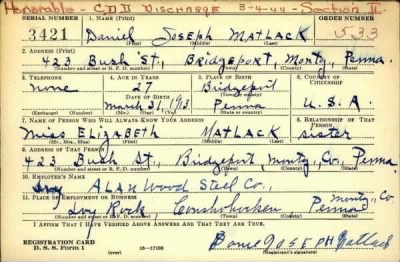 Honorable - CDD Discharge 3-4-44 - Section II
SERIAL NUMBER 1. NAME (Print) ORDER NUMBER
3421 Daniel Joseph MATLACK 533
(First) (Middle) (Last)
2. ADDRESS (Print)
423 Bush St., Bridgeport, Montg, Penna.
(Number and street or R. F. D. number) (Town) (County) (State)
3. TELEPHONE 4. AGE IN YEARS 5. PLACE OF BIRTH 6. COUNTRY OF CITIZENSHIP
none 27 Bridgeport
DATE OF BIRTH (Town or county)
March 31, 1913 Penna U.S.A.
(Exchange) (Number) (Mo.) (Day) (Yr.) (State or country)
7. NAME OF PERSON WHO WILL ALWAYS KNOW YOUR ADDRESS 8. RELATIONSHIP OF THAT PERSON
Miss Elizabeth MATLACK sister
(Mr., Mrs., Miss) (First) (Middle) (Last)
9. ADDRESS OF THAT PERSON
423 Bush St., Bridgeport, Montg, Co., Penna
(Number and street or R. F. D. number) (Town) (County) (State)
10. EMPLOYER'S NAME
Alan Wood Steel Co.,
11. PLACE OF EMPLOYMENT OR BUSINESS
Ivy Rock, Conshohocken Montg, Co. Penna
(Number and street or R. F. D. number) (Town) (County) (State)
I AFFIRM THAT I HAVE VERIFIED ABOVE ANSWERS AND THAT THEY ARE TRUE.
REGISTRATION CARD
D. S. S. Form 1 16-17105
JOSEPH Matlack
(Registrant's signature)